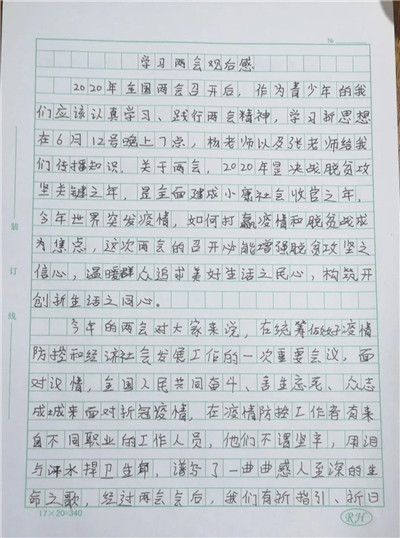 学习两会观后感
2020年全国两会召开后，作为青少年的我
们应该认真学习、践行两会精神，学习新思想
在6月12号晚上7点，杨老师以及张老师给我
们传播知识。关于两会，2020年是决战脱贫攻
坚关键之年，是全面建成小康社会收官之年，
今年世界突发疫情，如何打赢疫情和脱贫战成
为焦点，这次两会的召开必能增强脱贫攻坚之
信心，温暖群众追求美好生活之民心，构筑开
创新生活之同心。
今年的两会对大家来说，在统筹做好疫情
防控和经济社会发展工作的一次重要会议，面
对议情，全国人民共同奋斗、舍生忘死、众志
成城来面对新冠疫情，在疫情防控工作者有来
自不同职业的工作人员，他们不谓坚辛，用泪
与汗水捍卫生命，谱写了一曲曲感人至深的生
命之歌，经过两会会后，我们有新指引、新目
装
订
线
17×20=340
RH